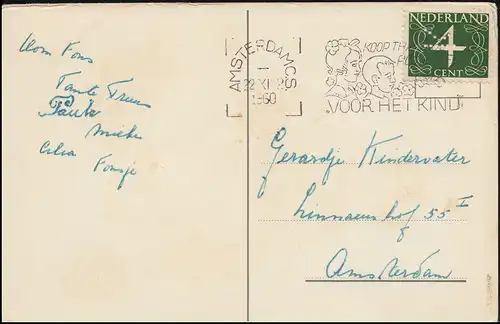 Oom Fons
Tante Truus
Pauk
Mieke
Cilia Fonsje
AMSTERDAM CS
22 XI
1960
KOOP
VOOR HET KIND
NEDERLAND
4
CENT
Gerardje Kindervater
Linnaeushof 55 I
Amsterdam